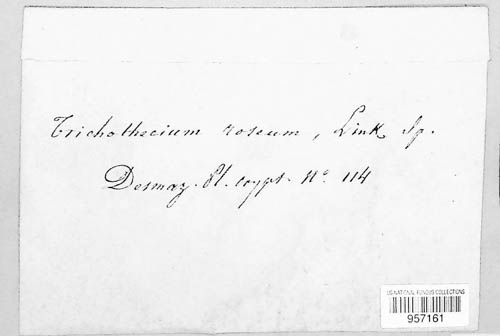 Trichothecium roseum, Link Sp.
Desmaz. Pl. crypt. No. 114
US NATIONAL FUNGUS COLLECTIONS
957161